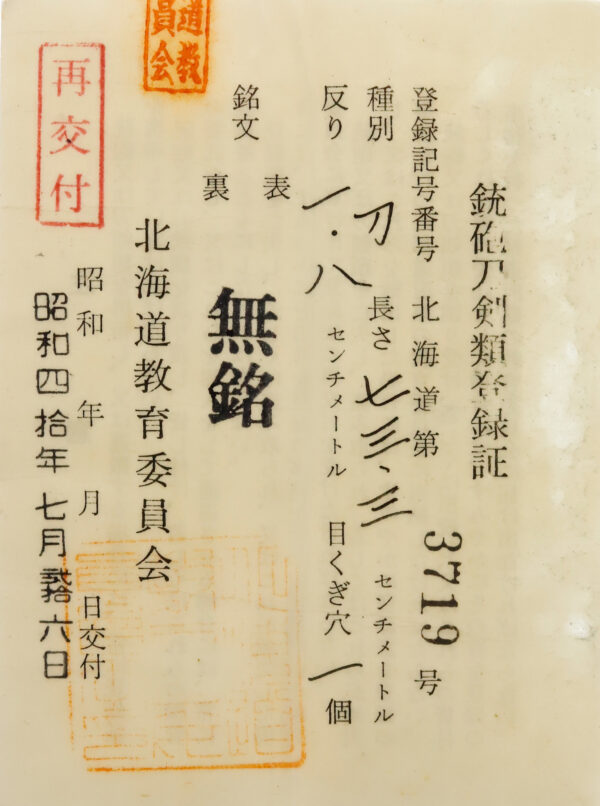 銃砲刀剣類登録証
登録記号番号 北海道第 3719 号
種別 刀 長さ 七三.三 センチメートル
反り 一.八 センチメートル 目くぎ穴 一個
銘文
表
裏
無銘
北海道教育委員会
昭和 年 月 日交付
昭和四拾年七月弐拾六日
再交付
道教
員会